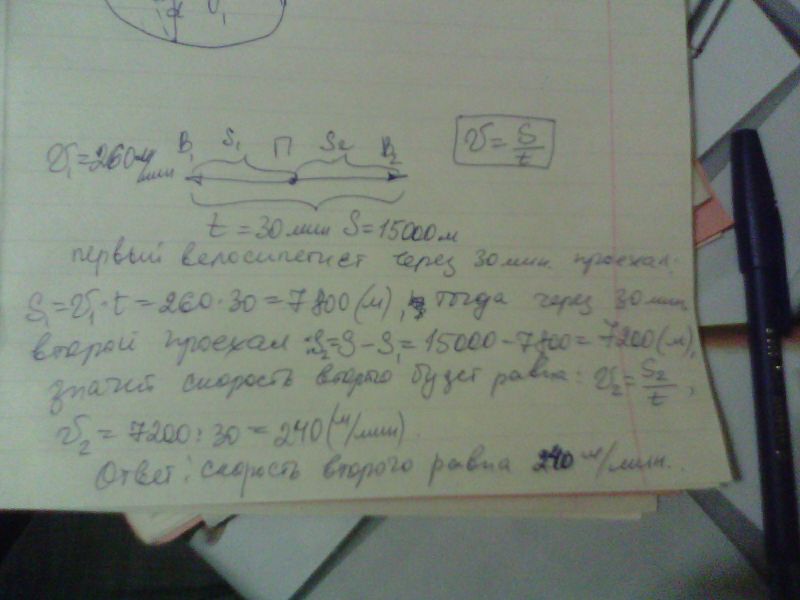 α V₁
V₁=260м/мин B₁ S₁ П S₂ B₂
V=S/t
t=30мин S=15000м
первый велосипетист через 30мин. проехал:
S₁=V₁·t=260·30=7800(м), тогда через 30мин.
второй проехал: S₂=S-S₁=15000-7800=7200(м),
значит скорость второго будет равна: V₂=S₂/t,
V₂=7200:30=240(м/мин)
Ответ: скорость второго равна 240 м/мин.